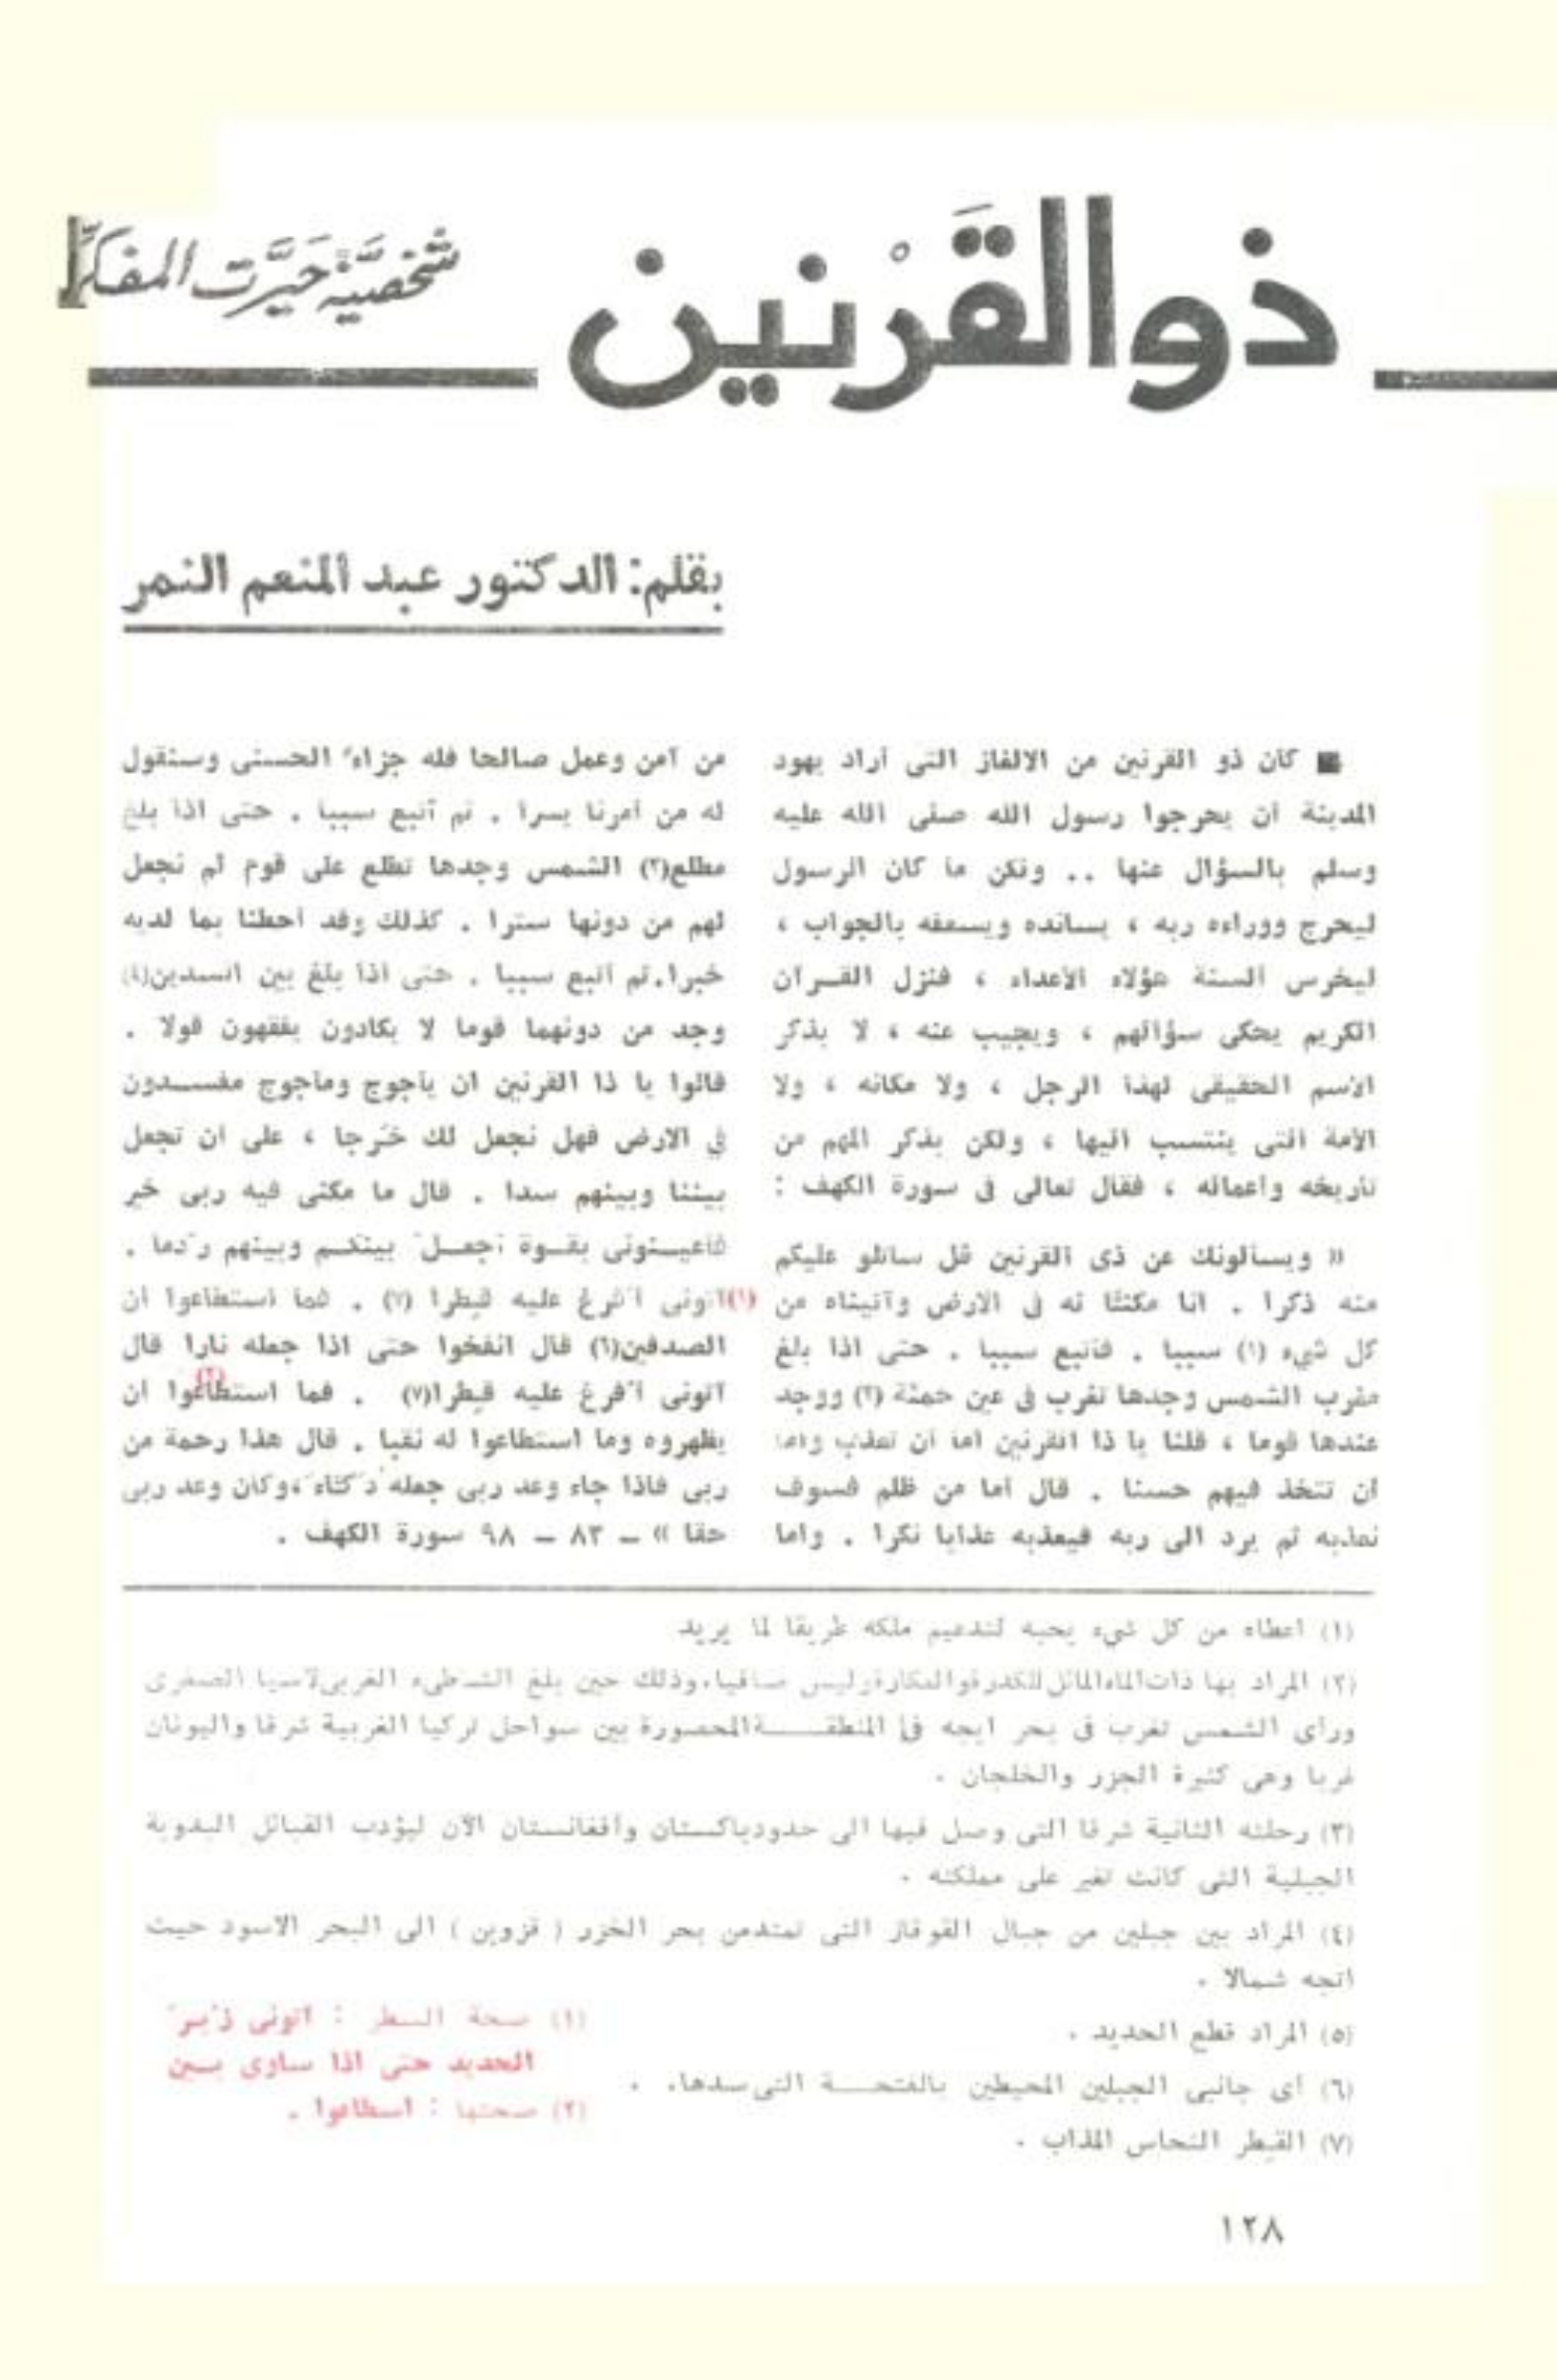 ذوالقَرْنين
شخصيَّة حيَّرت المفكِّر
بقلم: الدكتور عبد المنعم النمر
■ كان ذو القرنين من الالغاز التى أراد يهود
المدينة أن يحرجوا رسول الله صلى الله عليه
وسلم بالسؤال عنها .. ولكن ما كان الرسول
ليحرج ووراءه ربه ، يسانده ويسعفه بالجواب ،
ليخرس ألسنة هؤلاء الأعداء ، فنزل القــرآن
الكريم يحكى سؤالهم ، ويجيب عنه ، لا يذكر
الاسم الحقيقى لهذا الرجل ، ولا مكانه ، ولا
الأمة التى ينتسب اليها ، ولكن يذكر المهم من
تاريخه وأعماله ، فقال تعالى فى سورة الكهف :
« ويسألونك عن ذى القرنين قل سأتلو عليكم
منه ذكرا . انا مكنَّا له فى الارض وآتيناه من
كل شىء (١) سببا . فأتبع سببا . حتى اذا بلغ
مغرب الشمس وجدها تغرب فى عين حمئة (٢) ووجد
عندها قوما ، قلنا يا ذا القرنين اما أن تعذب واما
أن تتخذ فيهم حسنا . قال أما من ظلم فسوف
نعذبه ثم يرد الى ربه فيعذبه عذابا نكرا . وأما
من آمن وعمل صالحا فله جزاءً الحسنى وسنقول
له من أمرنا يسرا . ثم أتبع سببا . حتى اذا بلغ
مطلع(٣) الشمس وجدها تطلع على قوم لم نجعل
لهم من دونها سترا . كذلك وقد أحطنا بما لديه
خبرا.ثم أتبع سببا . حتى اذا بلغ بين السدين(٤)
وجد من دونهما قوما لا يكادون يفقهون قولا .
قالوا يا ذا القرنين ان يأجوج ومأجوج مفســدون
فى الارض فهل نجعل لك خَرجا ، على ان تجعل
بيننا وبينهم سدا . قال ما مكنى فيه ربى خير
فأعيــنونى بقــوة أجعــلْ بينكــم وبينهم ردما .
(١)آتونى أفرغ عليه قِطرا (٧) . فما استطاعوا ان
الصدفين(٦) قال انفخوا حتى اذا جعله نارا قال
آتونى أفرغ عليه قِطرا(٧) . فما استطاعوا(٢) ان
يظهروه وما استطاعوا له نقبا . قال هذا رحمة من
ربى فاذا جاء وعد ربى جعله دَكَّاءَ ،وكان وعد ربى
حقا » – ٨٣ – ٩٨ سورة الكهف .
(١) أعطاه من كل شىء يحبه لتدعيم ملكه طريقا لما يريد
(٢) المراد بها ذات الماء المائل للكدرة والعكارة وليس صافيا، وذلك حين بلغ الشاطىء الغربى لآسيا الصغرى
ورأى الشمس تغرب فى بحر ايجه فى المنطقــــة المحصورة بين سواحل تركيا الغربية شرقا واليونان
غربا وهى كثيرة الجزر والخلجان .
(٣) رحلته الثانية شرقا التى وصل فيها الى حدود باكستان وأفغانستان الآن ليؤدب القبائل البدوية
الجبلية التى كانت تغير على مملكته .
(٤) المراد بين جبلين من جبال القوقاز التى تمتد من بحر الخزر ( قزوين ) الى البحر الاسود حيث
اتجه شمالا .
(٥) المراد قطع الحديد .
(٦) أى جانبى الجبلين المحيطين بالفتحــــة التى سدها. .
(٧) القِطر النحاس المذاب .
(١) صحة السطر : آتونى زُبرَ
الحديد حتى اذا ساوى بــين
(٢) صحتها : اسطاعوا .
١٢٨